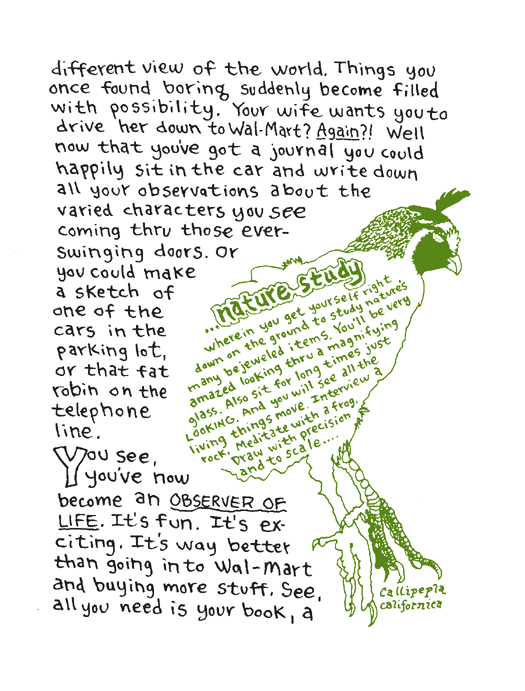 different view of the world. Things you
once found boring suddenly become filled
with possibility. Your wife wants you to
drive her down to Wal-Mart? Again?! Well
now that you've got a journal you could
happily sit in the car and write down
all your observations about the
varied characters you see
coming thru those ever-
swinging doors. Or
you could make
a sketch of
one of the
cars in the
parking lot,
or that fat
robin on the
telephone
line.
You see,
you've now
become an OBSERVER OF
LIFE. It's fun. It's ex-
citing. It's way better
than going into Wal-Mart
and buying more stuff. See,
all you need is your book, a
...nature study
wherein you get yourself right
down on the ground to study nature's
many bejeweled items. You'll be very
amazed looking thru a magnifying
glass. Also sit for long times just
LOOKING. And you will see all the
living things move. Interview a
rock. Meditate with a frog.
Draw with precision
and to scale....
Callipepla
californica